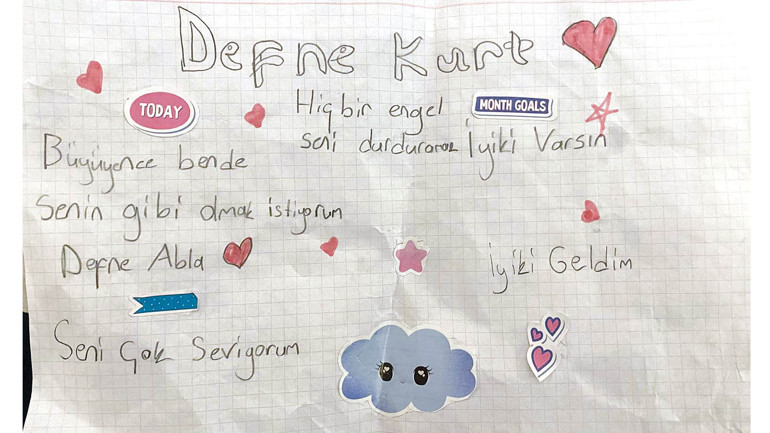 Defne Kurt
TODAY
Hiçbir engel
seni durduramaz
MONTH GOALS
İyiki Varsın
Büyüyence bende
Senin gibi olmak istiyorum
Defne Abla
İyiki Geldim
Seni Çok Seviyorum